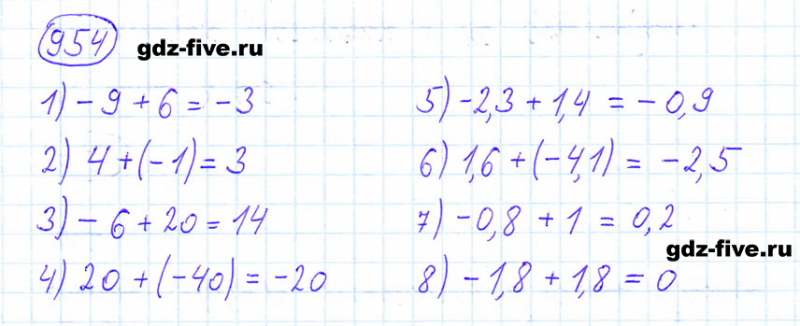 954 gdz-five.ru
1) -9 + 6 = -3
2) 4 + (-1) = 3
3) -6 + 20 = 14
4) 20 + (-40) = -20
5) -2,3 + 1,4 = -0,9
6) 1,6 + (-4,1) = -2,5
7) -0,8 + 1 = 0,2
gdz-five.ru
8) -1,8 + 1,8 = 0